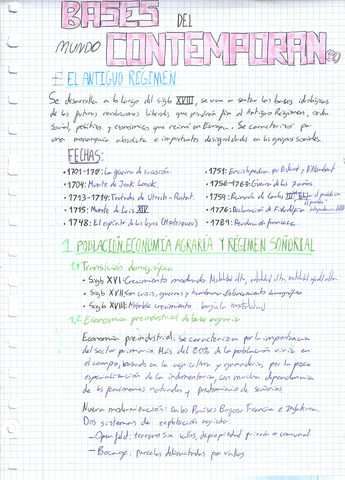 BASES DEL
MUNDO CONTEMPORAN
EL ANTIGUO RÉGIMEN
Se desarrolla a lo largo del siglo XVIII, se van a sentar las bases ideológicas
de las futuras revoluciones liberales que pondrán fin al Antiguo Régimen, orden
social, político y económico que reina en Europa. Se caracteriza por
una monarquía absoluta e importantes desigualdades en los grupos sociales.
FECHAS:
La guerra de sucesión.
• 1704: Muerte de
• 1713-1714: Tratados de Utrecht-Rastatt.
• 1715: Muerte de Luis XIV
• 1748: El espíritu de las leyes (Montesquieu)
• 1751: Enciclopedia por Diderot y D'Alembert
• 1756-1763: Guerra de los 7 años
• 1759: Reinado de Carlos III
• 1776: Declaración de Filadelfia
• 1789: Revolución francesa.
1. POBLACIÓN, ECONOMÍA AGRARIA Y RÉGIMEN SEÑORIAL
1.1 Transición demográfica
• Siglo XVI: Crecimiento moderado. Natalidad alta, mortalidad alta, mortalidad
• Siglo XVII: Son crisis, guerras y hambrunas. Estancamiento demográfico
• Siglo XVIII: Notable crecimiento
1.2 Economía preindustrial de base agraria
Economía preindustrial: se caracteriza por la importancia
del sector primario. Más del 80% de la población vivía en
el campo, basada en la agricultura y ganadería, por la poca
especialización de la indumentaria, con mucha dependencia
de los fenómenos naturales y predominio de señoríos.
Nueva modernización: en los Países Bajos, Francia e Inglaterra.
Dos sistemas de explotación agrícola:
- Openfield: terreno sin vallas, de propiedad privada o comunal
- Bocage: parcelas delimitadas por vallas